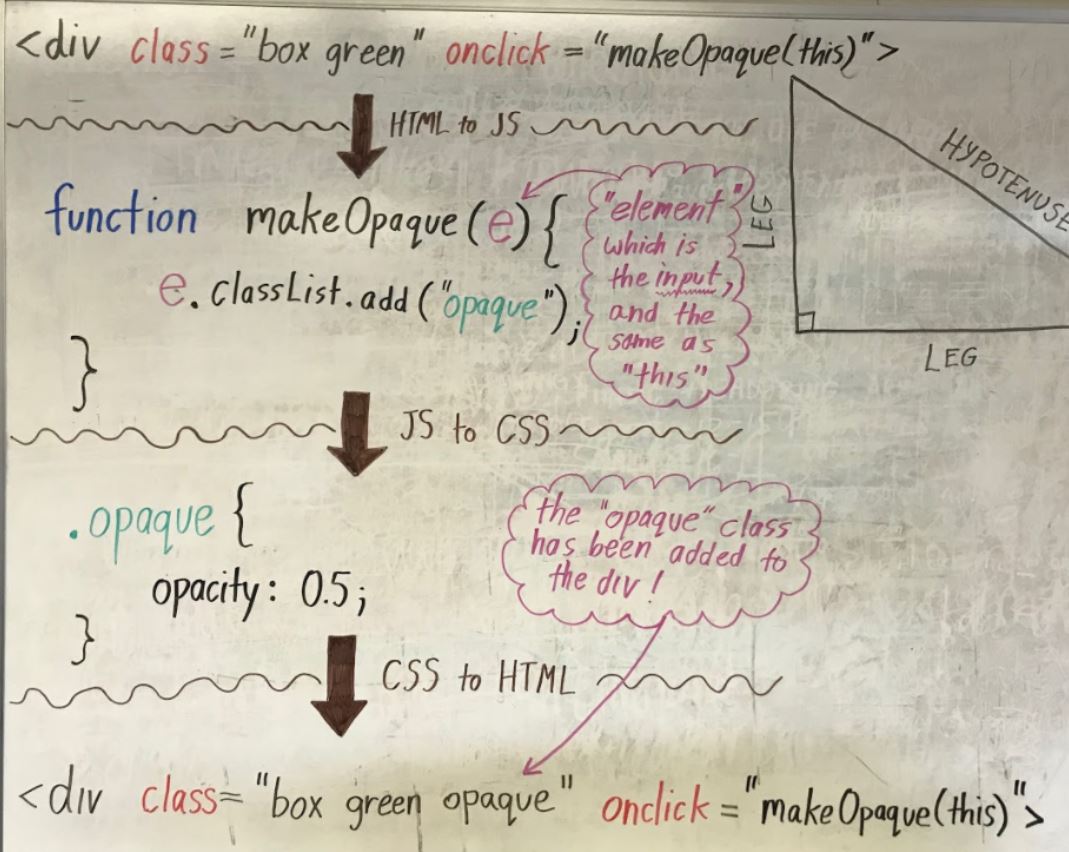 <div class="box green" onclick="makeOpaque(this)">
HTML to JS
function makeOpaque(e){
e.classList.add("opaque");
}
"element"
which is
the input,
and the
same as
"this"
LEG
HYPOTENUSE
LEG
JS to CSS
.opaque {
opacity: 0.5;
}
the "opaque" class
has been added to
the div!
CSS to HTML
<div class="box green opaque" onclick="makeOpaque(this)">